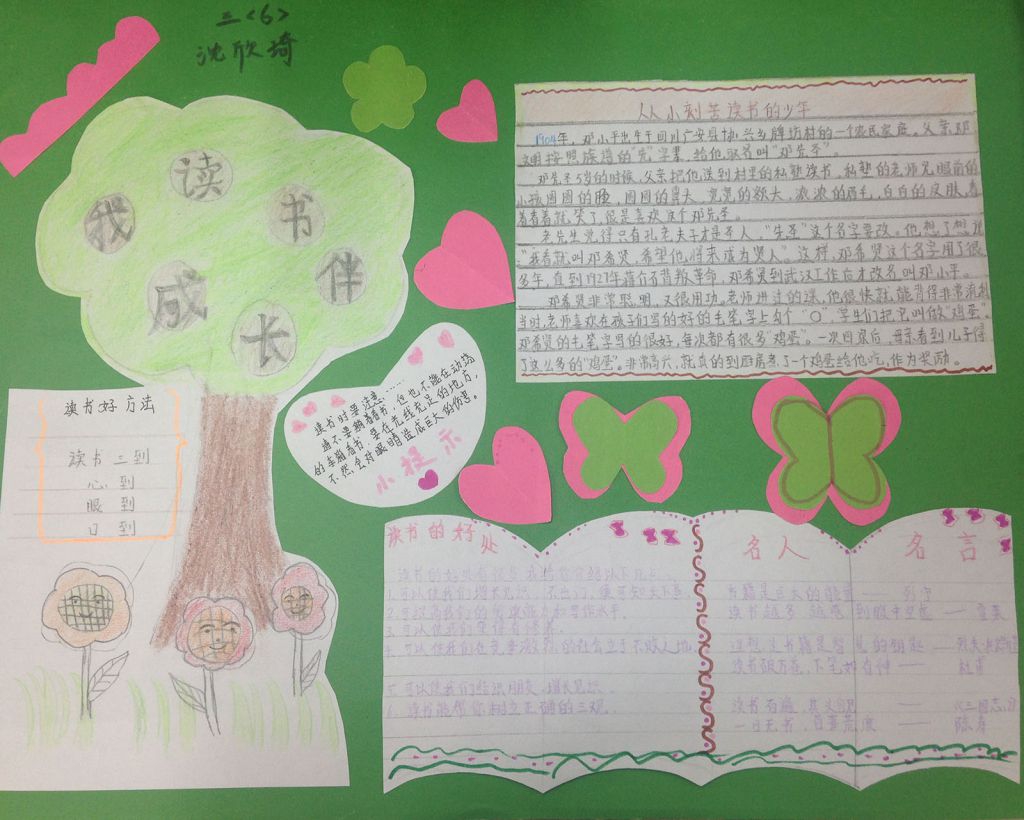 三<6>
沈欣琦
读书伴我成长
从小刻苦读书的少年
1904年，邓小平出生于四川广安县协兴乡牌坊村的一个农民家庭。父亲邓
文明按照族谱的"先"字辈，给他取名叫"邓先圣"。
邓先圣5岁的时候，父亲把他送到村里的私塾读书。私塾的老师见眼前的
小孩圆圆的脸，圆圆的鼻头，宽宽的额头，浓浓的眉毛，白白的皮肤，看
着看着就笑了，很是喜欢这个邓先圣。
老先生觉得只有孔老夫子才是圣人，"先圣"这个名字要改。他想了想说
："我看就叫邓希贤，希望他将来成为贤人"。这样，邓希贤这个名字用了很
多年，直到1927年蒋介石背叛革命，邓希贤到武汉工作后才改名叫邓小平。
邓希贤非常聪明，又很用功。老师讲过的课，他很快就能背得非常流利
当时，老师喜欢在孩子们写的好的毛笔字上勾个"O"，学生们把它叫做"鸡蛋"。
邓希贤的毛笔字写的很好，每次都有很多"鸡蛋"。一次回家后，母亲看到儿子得
了这么多的"鸡蛋"。非常高兴，就真的到厨房煮了一个鸡蛋给他吃，作为奖励。
读书时要注意……
请不要躺着看书，但也不能在动荡
的车厢看书，要在光线充足的地方，
不然会对眼睛造成巨大的伤害。
小提示
读书好方法
读书三到
心到
眼到
口到
读书的好处
读书的好处有很多，我给你介绍以下几点：
1.可以使我们增长见识，不出门，便可知天下事。
2.可提高我们的阅读能力和写作水平。
3.可以使我们变得有修养。
4.可以使我们在竞争激烈的社会立于不败之地。
5.可以使我们结识朋友，增长见识。
6.读书能帮你树立正确的三观。
名人名言
书籍是巨大的力量 —— 列宁
读书越多，越感到腹中空虚 —— 雪莱
理想的书籍是智慧的钥匙 ——
读书破万卷，下笔如有神 —— 杜甫
读书百遍，其义自见 —— 《三国志》
一日无书，百事荒废 —— 陈寿